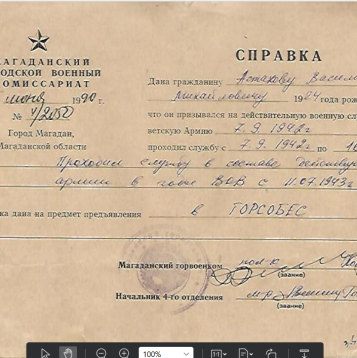 МАГАДАНСКИЙ
ГОРОДСКОЙ ВОЕННЫЙ
КОМИССАРИАТ
июня 1990 г.
№ 4/2050
Город Магадан,
Магаданской области
СПРАВКА
Дана гражданину Астахову Васил
Михайловичу 1924 года рож
что он призывался на действительную военную сл
ветскую Армию 7.9.1942 г
проходил службу с 7.9.1942 г по
Проходил службу в составе действую
армии в годы ВОВ с 11.07.1943 г
ка дана на предмет предъявления в ГОРСОБЕС
Магаданский горвоенком
(звание)
Начальник 4-го отделения м-р
(звание)
100%